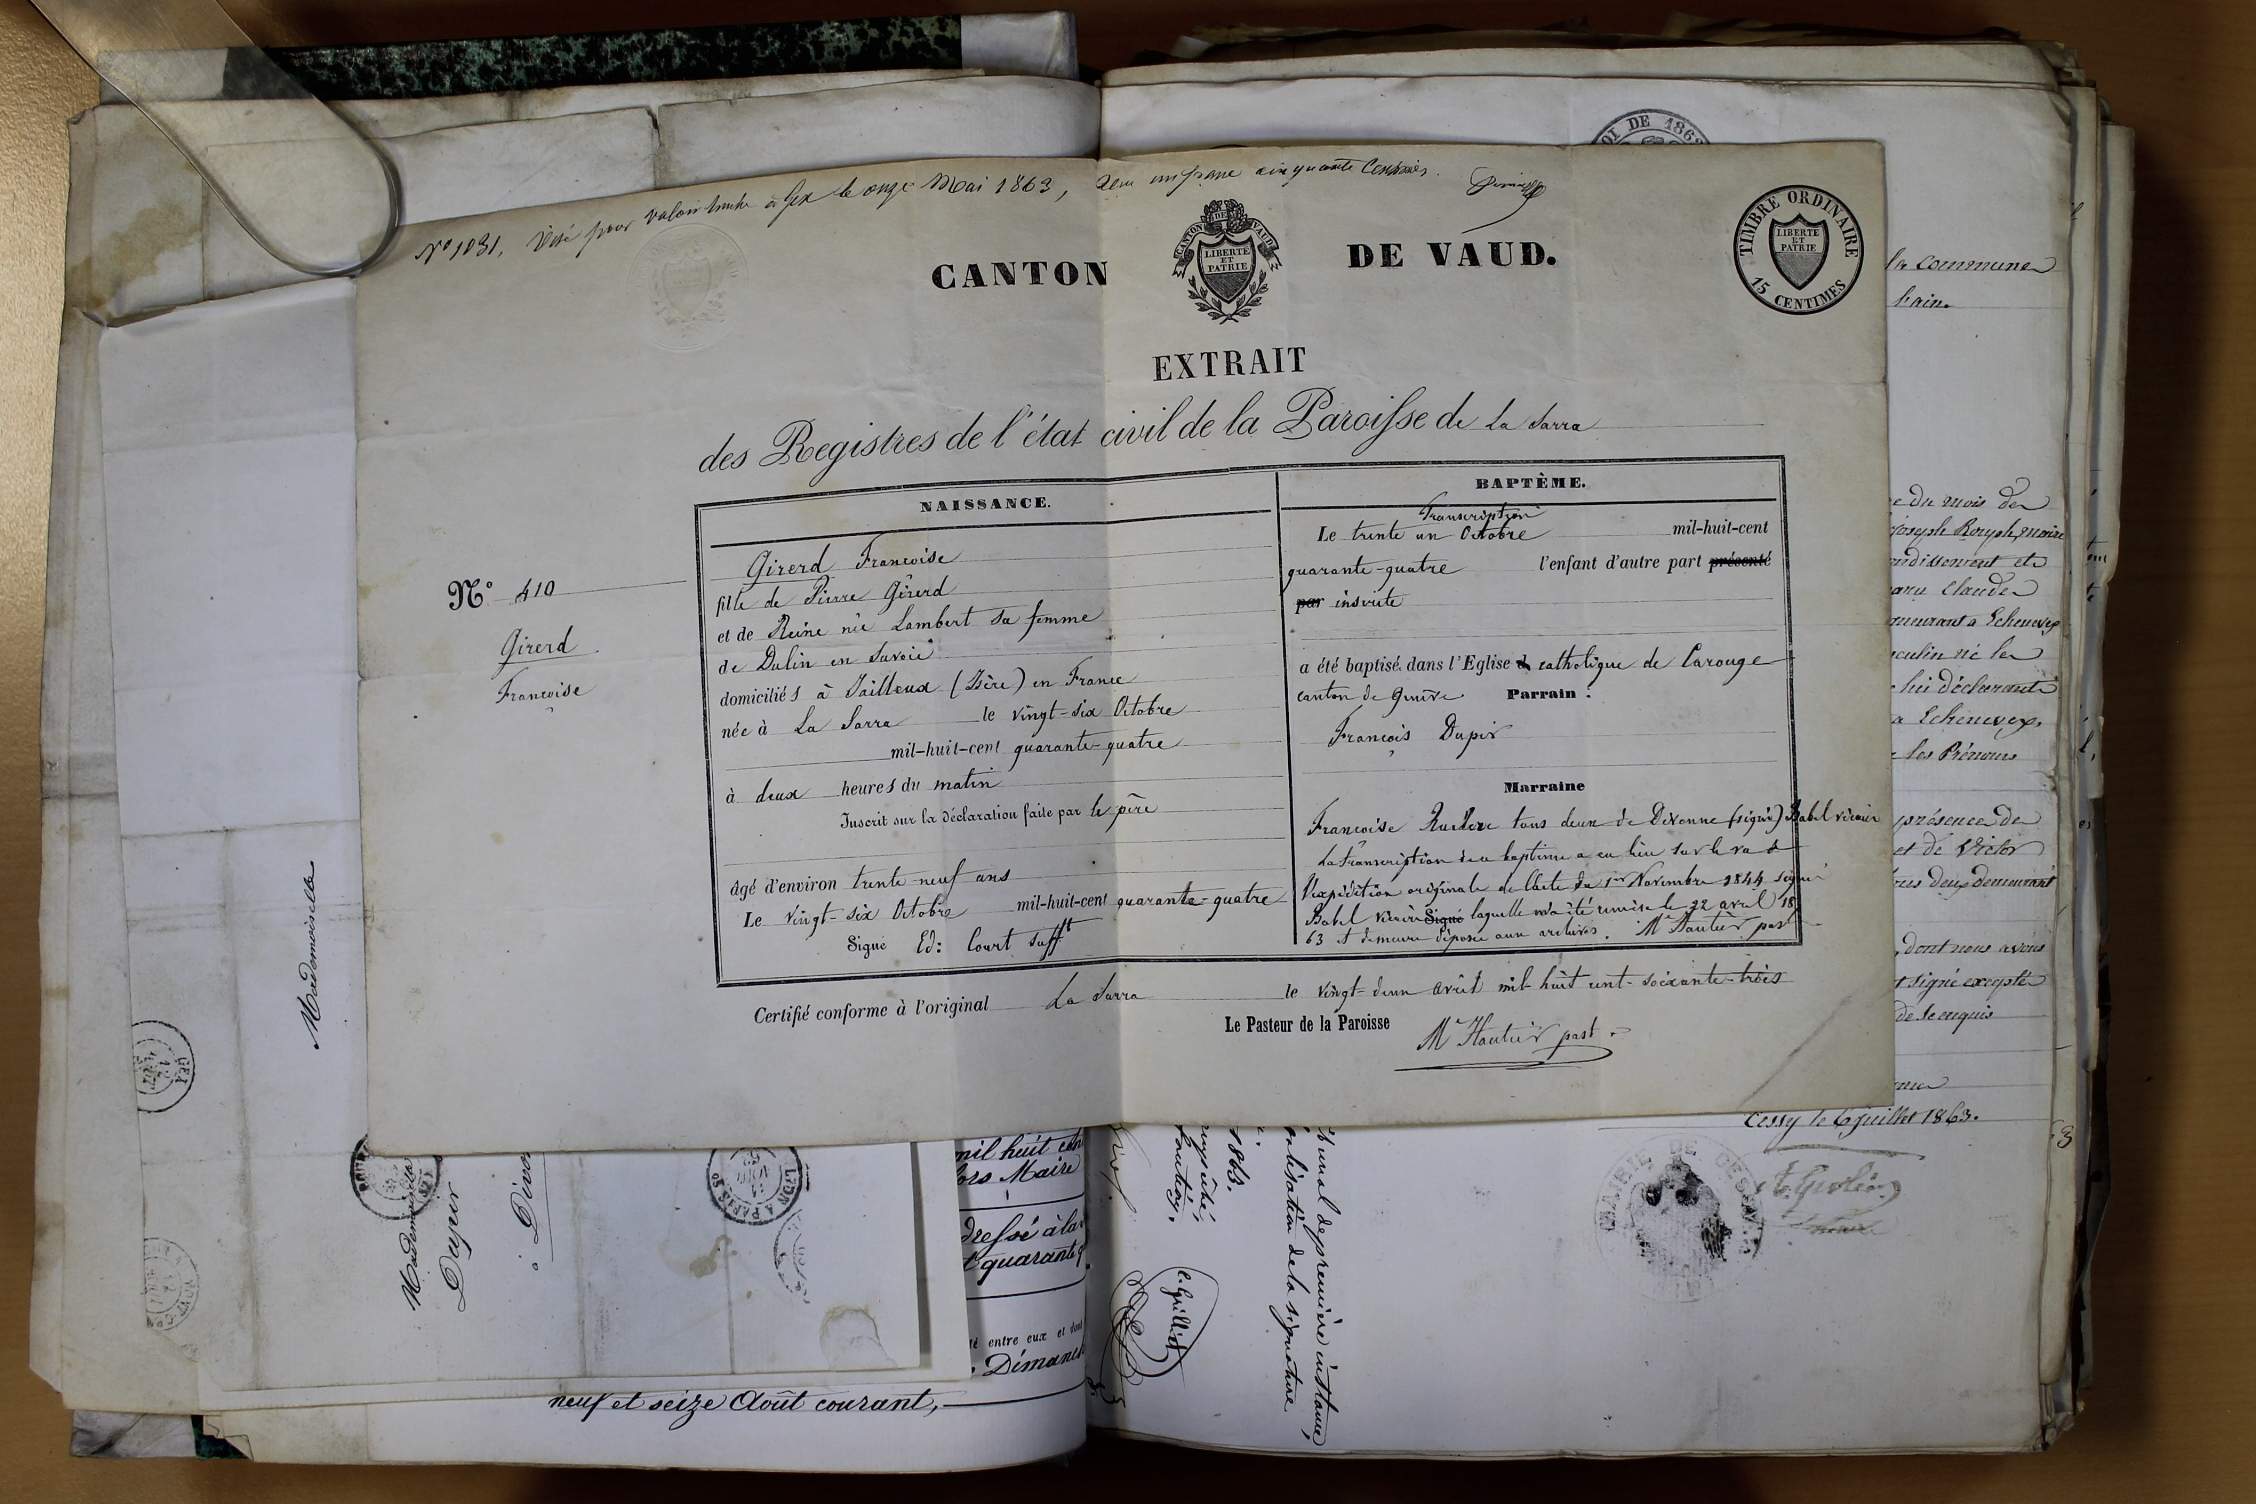 N° 1031, Visé pour valoir timbre à Gex le onze Mai 1863, Reçu un franc cinquante Centimes.
CANTON DE VAUD.
CANTON DE VAUD
LIBERTE
ET
PATRIE
TIMBRE ORDINAIRE
LIBERTE
ET
PATRIE
15 CENTIMES
EXTRAIT
des Registres de l'état civil de la Paroisse de La Sarra
N° 410
Girerd
Françoise
NAISSANCE.
Girerd Francoise
fille de Pierre Girerd
et de Reine née Lambert sa femme
de Dulin en Savoie
domiciliés à Jailleux (Isère) en France
née à La Sarra le vingt-six Octobre
mil-huit-cent quarante-quatre
à deux heures du matin
Inscrit sur la déclaration faite par le père
âgé d'environ trente neuf ans
Le vingt-six Octobre mil-huit-cent quarante-quatre
Signé Ed: Court suff.t
BAPTÈME.
Transcription
Le trente un Octobre mil-huit-cent
quarante-quatre l'enfant d'autre part présenté
par inscrite
a été baptisé dans l'Eglise d catholique de Carouge
canton de Genève Parrain :
François Dupir
Marraine
Francoise tous deux de Divonne (signé) Babel vicaire
La transcription de ce baptême a eu lieu sur le vu de
l'expédition originale de l'acte du 1er Novembre 1844 signé
Babel vicaire Signé laquelle m'a été remise le 22 avril 18
63 et demeure déposée aux archives. Mc Hautier past
Certifié conforme à l'original La Sarra le vingt-deux avril mil huit cent-soixante-trois
Le Pasteur de la Paroisse
Mc Hautier past.
OI DE 186
la commune
l'ain.
e du mois de
Joseph Rouph, maire
ondissement de
Claude
meurant a Echenevex
culin né le
lui déclarante
a Echenevex,
les Prénoms
présence de
et de Victor
ous deux demeurant
dont nous avons
t signé excepté
de ce enquis
Cessy le 6 juillet 1863.
MAIRIE DE CESSY
Mademoiselle
GEX
Mademoiselle
Dupir
à Divo
LYON A PARIS
mil huit cen
lors Maire
dressé à la
t quarante q
té entre eux et dont
Dimanch
neuf et seize Août courant,
1863.
bunal de première instance,
nalisation de la signature
C. Grillet